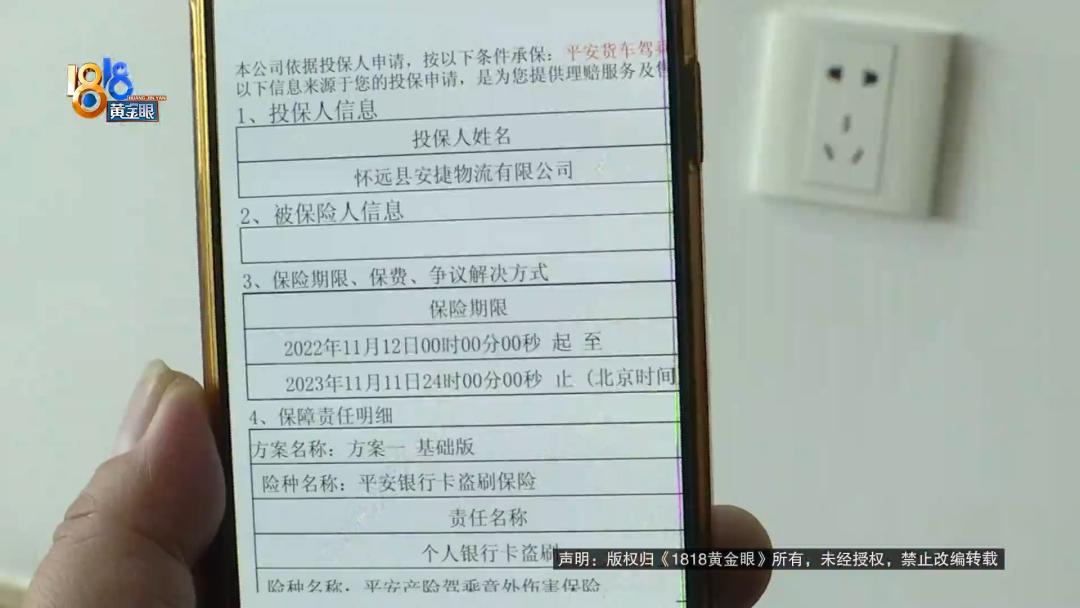 1818
HUANG JIN YAN
黄金眼
本公司依据投保人申请，按以下条件承保：平安货车驾乘
以下信息来源于您的投保申请，是为您提供理赔服务及售
1、投保人信息
投保人姓名
怀远县安捷物流有限公司
2、被保险人信息
3、保险期限、保费、争议解决方式
保险期限
2022年11月12日00时00分00秒 起 至
2023年11月11日24时00分00秒 止（北京时间
4、保障责任明细
方案名称：方案一 基础版
险种名称：平安银行卡盗刷保险
责任名称
个人银行卡盗刷
险种名称：平安产险驾乘意外伤害保险
声明：版权归《1818黄金眼》所有，未经授权，禁止改编转载